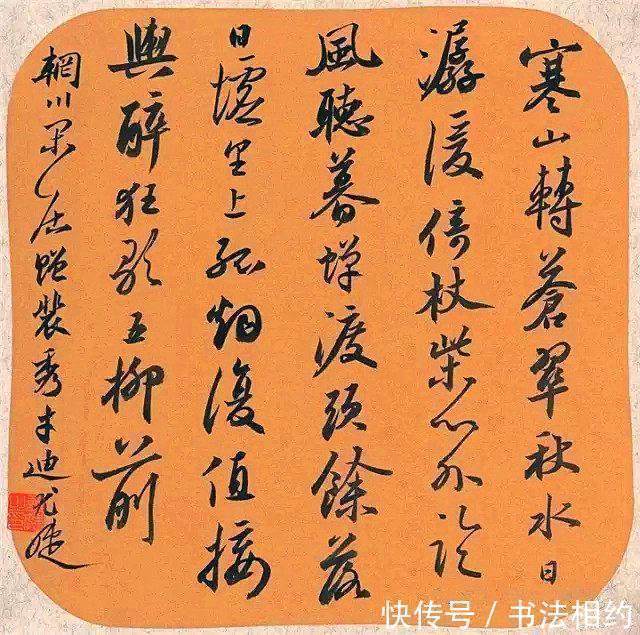 寒山轉蒼翠秋水日
潺湲倚杖柴門外臨
風聽暮蟬渡頭餘落
日墟里上孤烟復值接
輿醉狂歌五柳前
輞川閑居贈裴秀才迪
快传号 / 书法相约